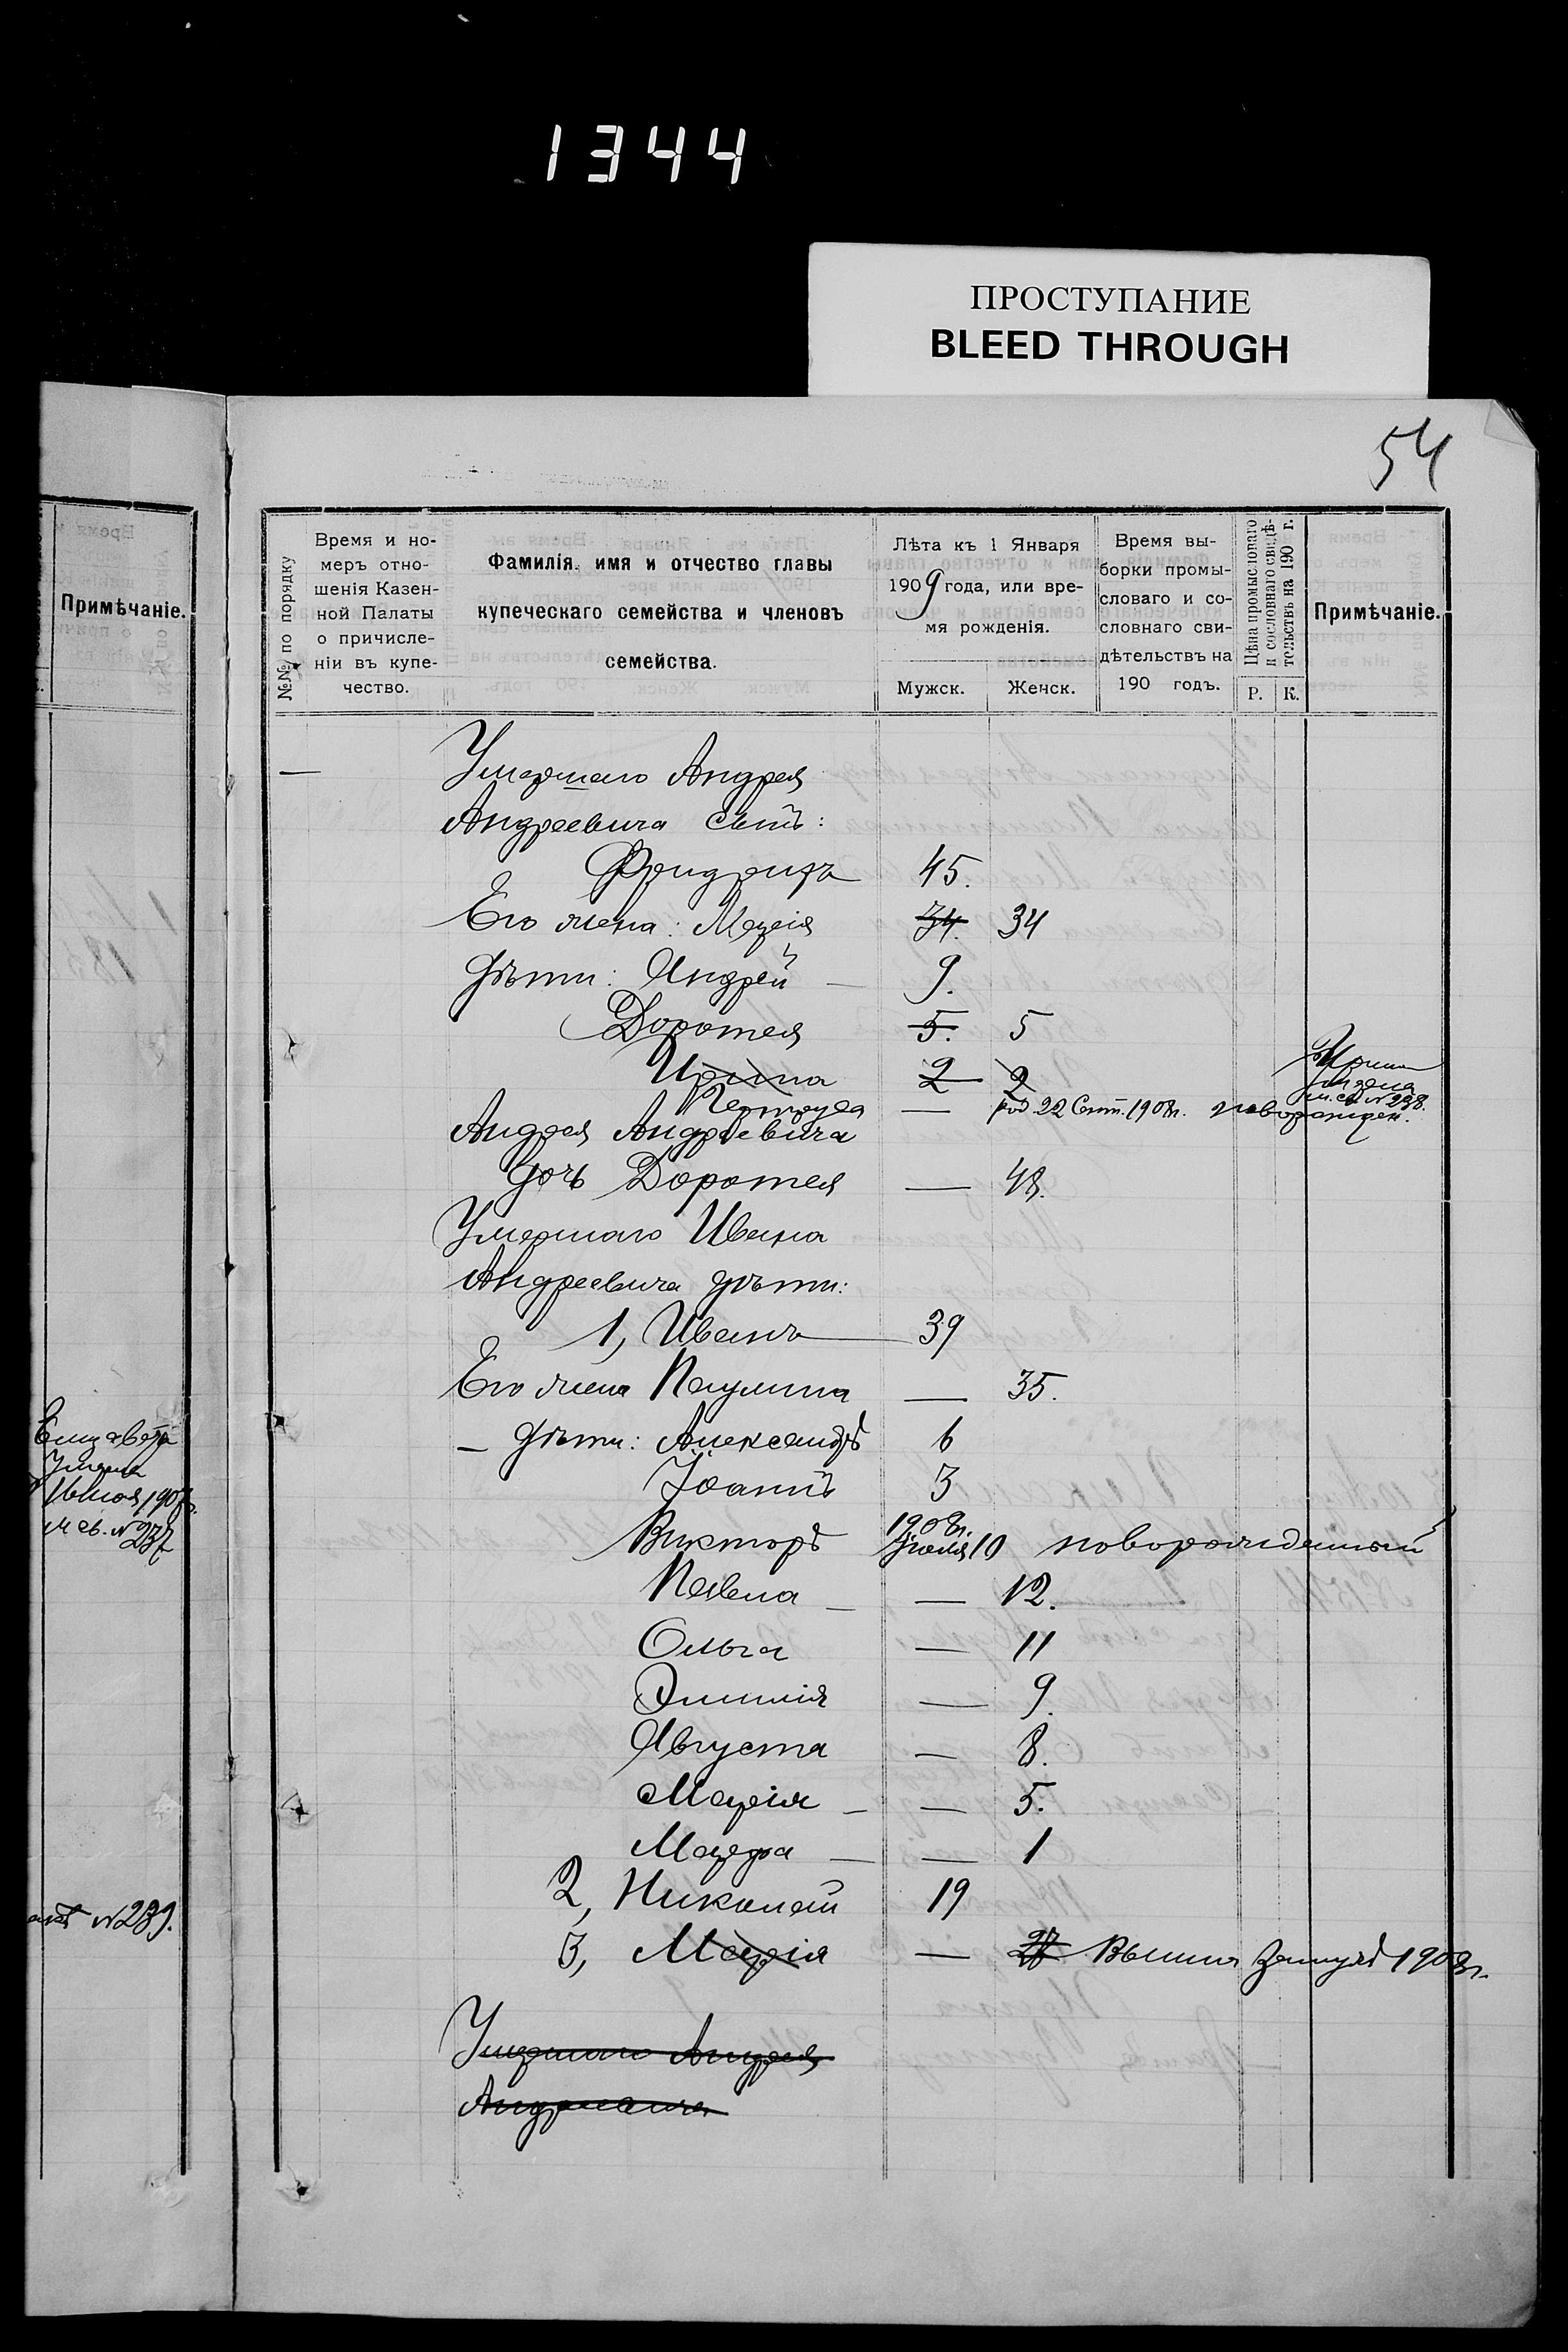 1344
ПРОСТУПАНИЕ
BLEED THROUGH
54
Примѣчаніе.
Елизавета
умерла
1907
м св. №237
актъ №239.
№№ по порядку
Время и но-
меръ отно-
шенія Казен-
ной Палаты
о причисле-
ніи въ купе-
чество.
Фамилія. имя и отчество главы
купеческаго семейства и членовъ
семейства.
Лѣта къ 1 Января
1909 года, или вре-
мя рожденія.
Мужск. Женск.
Время вы-
борки промы-
словаго и со-
словнаго сви-
дѣтельствъ на
190 годъ.
Цѣна промысловаго
и сословнаго свидѣ-
тельствъ на 190 г.
Р. К.
Примѣчаніе.
— Умершаго Андрея
Андреевича сынъ:
Фридрихъ 45.
Его жена: Марія 34. 34
Дѣти: Андрей — 9.
Доротея 5. 5
Ирина 2 2 Ирина
умерла
м. св №238.
Гертруда — род 22 Сент. 1908г. новорожден.
Андрея Андреевича
дочь Доротея — 48.
Умершаго Ивана
Андреевича дѣти:
1, Иванъ 39
Его жена Паулина — 35.
— Дѣти: Александръ 6
Іоаннъ 3
Викторъ 1908г. Іюля 10 новорожденный
Павла — — 12.
Ольга — 11
Эмилія — 9.
Августа — 8.
Марія — — 5.
Марфа — — 1
2, Николай 19
3, Марія — 27 Вышла замужъ 1908г.
Умершаго Андрея
Андреевича